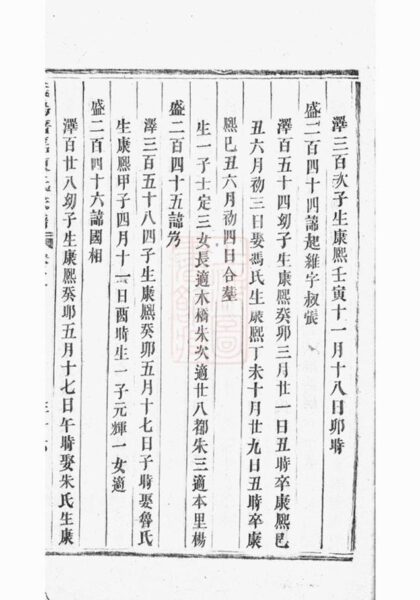 澤三百次子生康熙壬寅十一月十八日卯時
盛二百四十四諱起維字叔張
澤百五十四幼子生康熙癸卯三月廿一日丑時卒康熙己
丑六月初三日娶馮氏生康熙丁未十月廿九日丑時卒康
熙己丑六月初四日合墓
生一子士定三女長適木橋朱次適廿八都朱三適本里楊
盛二百四十五諱
澤三百五十八四子生康熙癸卯五月十七日子時娶魯氏
生康熙甲子四月十一日酉時生一子元輝一女適
盛二百四十六諱國相
澤百廿八幼子生康熙癸卯五月十七日午時娶朱氏生康